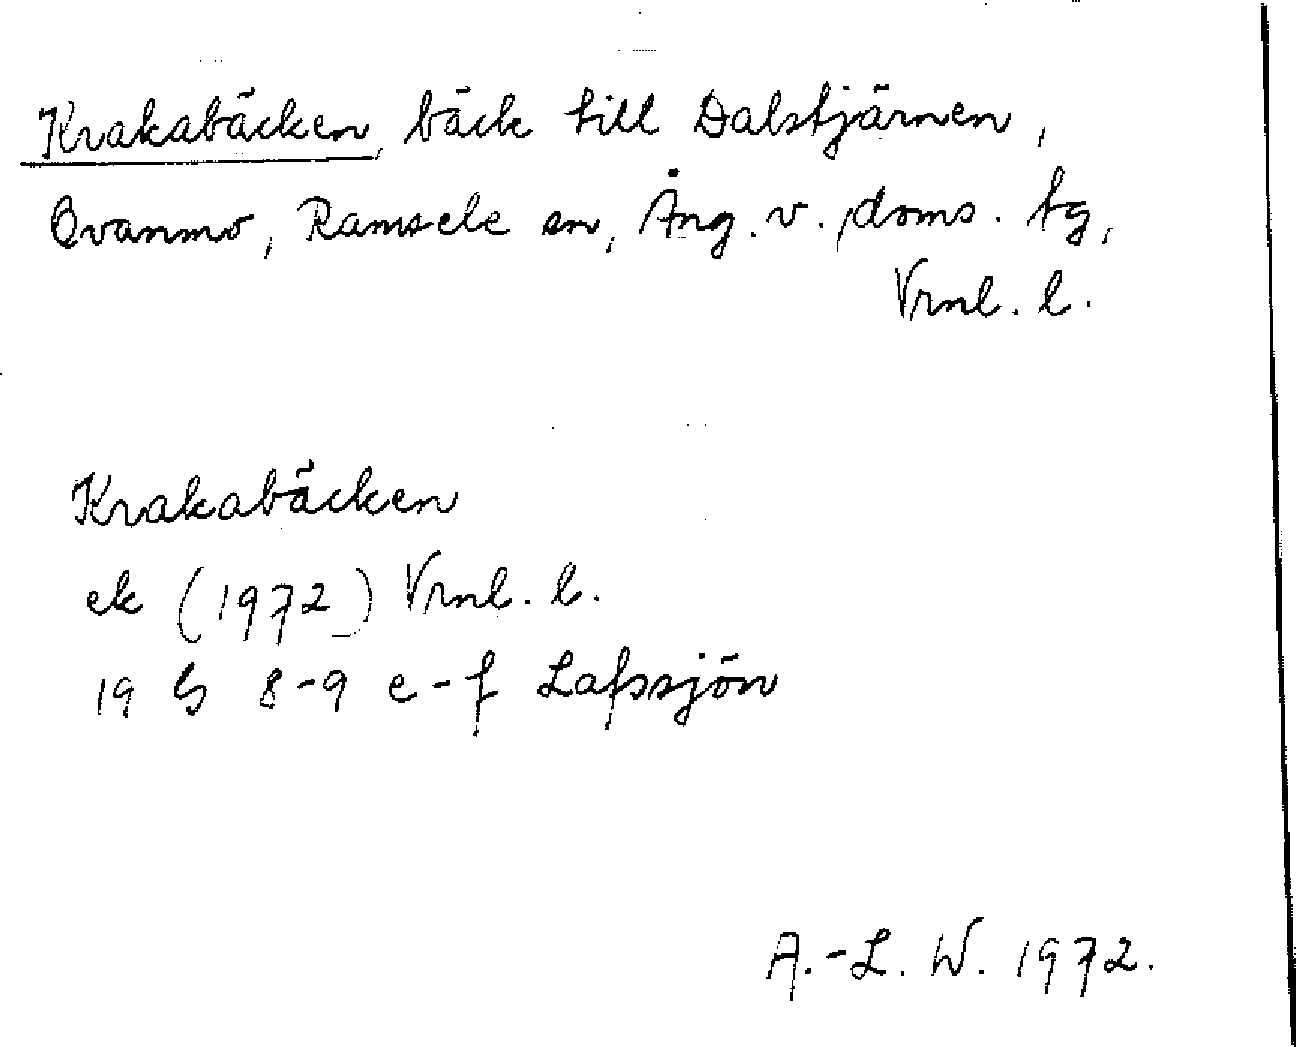 Krakabäcken, bäck till Dalstjärnen,
Ovanmo, Ramsele sn, Ång. v. doms. tg,
Vrnl. l.
Krakabäcken
ek (1972) Vrnl. l.
19 G 8-9 e-f Lafssjön
A.-L. W. 1972.